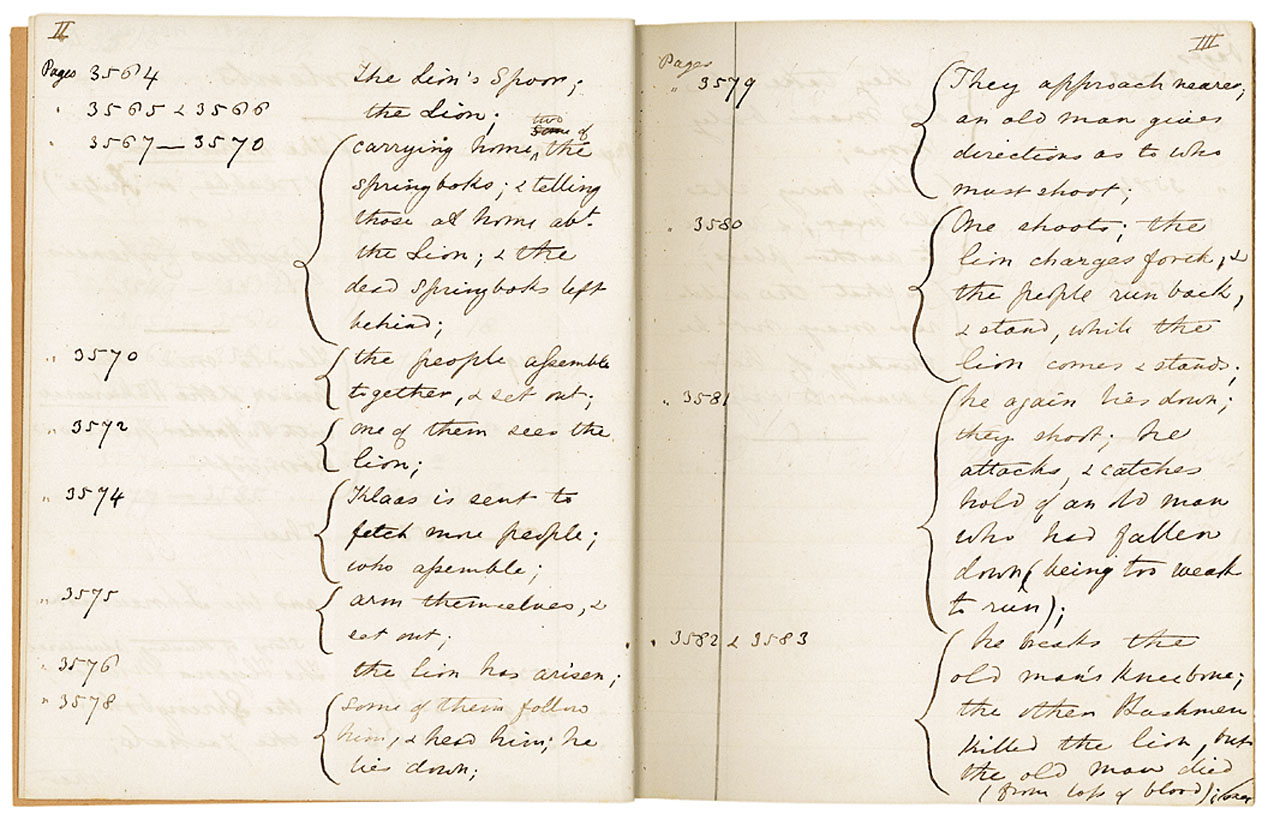 II
Pages 3564 The Lion's Spoor;
" 3565 & 3566 the Lion;
two
Some of
" 3567 — 3570 carrying home, ^ the
springboks; & telling
those at home abt.
the Lion; & the
dead springboks left
behind;
" 3570 the people assemble
together, & set out;
" 3572 one of them sees the
lion;
" 3574 Klaas is sent to
fetch more people;
who assemble;
" 3575 arm themselves, &
set out;
" 3576 the lion has arisen;
" 3578 Some of them follow
him, & head him; he
lies down;
III
Pages
" 3579 They approach nearer;
an old man gives
directions as to who
must shoot;
" 3580 One shoots; the
lion charges forth, &
the people run back,
& stand, while the
lion comes & stands;
" 3581 he again lies down;
they shoot; he
attacks, & catches
hold of an old man
who had fallen
down (being too weak
to run);
" 3582 & 3583 he breaks the
old man's kneebone;
the other Bushmen
killed the lion, but
the old man died
(from loss of blood);